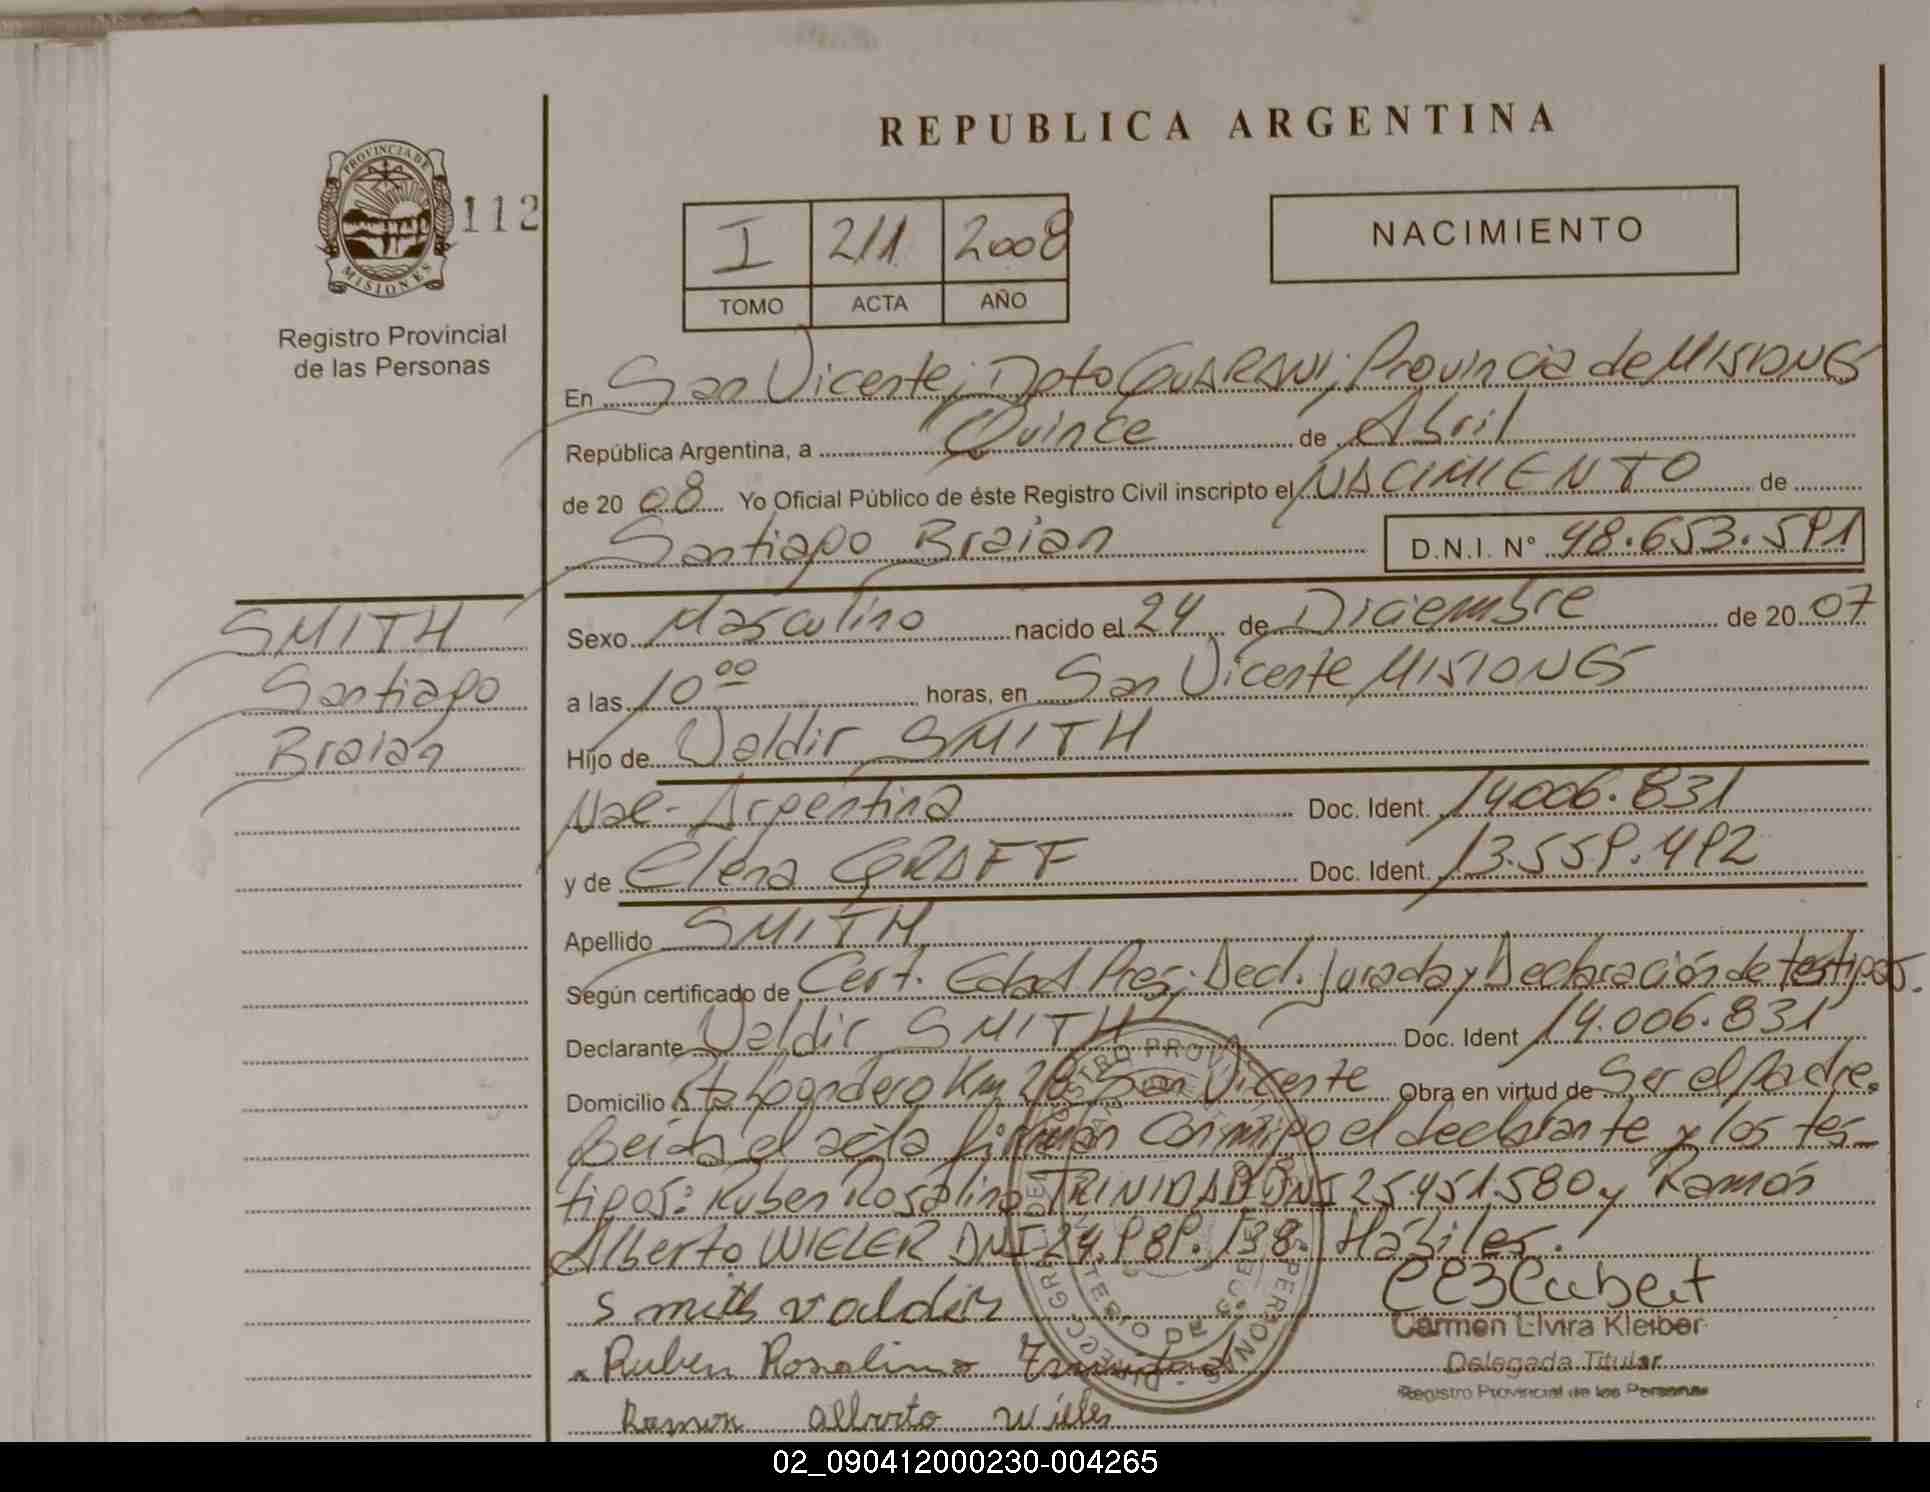 REPUBLICA ARGENTINA
PROVINCIA DE
MISIONES
112
Registro Provincial
de las Personas
I 211 2008
TOMO ACTA AÑO
NACIMIENTO
En San Vicente; Dpto GUARANI; Provincia de MISIONES
República Argentina, a Quince de Abril
de 2008 Yo Oficial Público de éste Registro Civil inscripto el NACIMIENTO de
Santiago Braian D.N.I. Nº 48.653.591
SMITH
Santiago
Braian
Sexo Masculino nacido el 24 de Diciembre de 2007
a las 10 00 horas, en San Vicente MISIONES
Hijo de Valdir SMITH
Nac- Argentina Doc. Ident. 14006.831
y de Elena GRAFF Doc. Ident. 13.559.492
Apellido SMITH
Según certificado de Cert. Edad Pres; Decl. Jurada y Declaración de testigos.
Declarante Valdir SMITH Doc. Ident 14.006.831
Domicilio Km 28 San Vicente Obra en virtud de Ser el Padre.
Leida el acta firman conmigo el declarante y los tes-
tigos: Ruben Rosalino TRINIDAD DNI 25.451.580 y Ramón
Alberto WIELER DNI 24.989.138. Hábiles.
Smith valdir
Ruben Rosalino Trinidad
Ramon alberto Wieler
Carmen Elvira Kleiber
Delegada Titular
Registro Provincial de las Personas
02_090412000230-004265